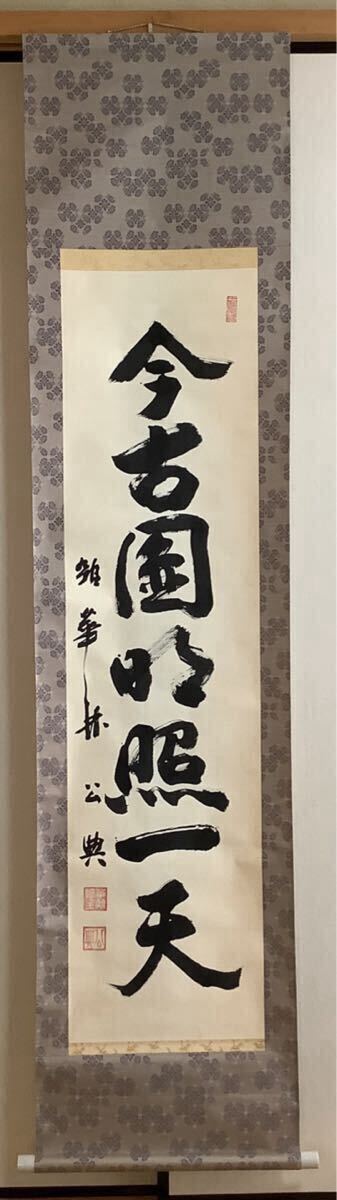 今古圓明照一天
華林公典